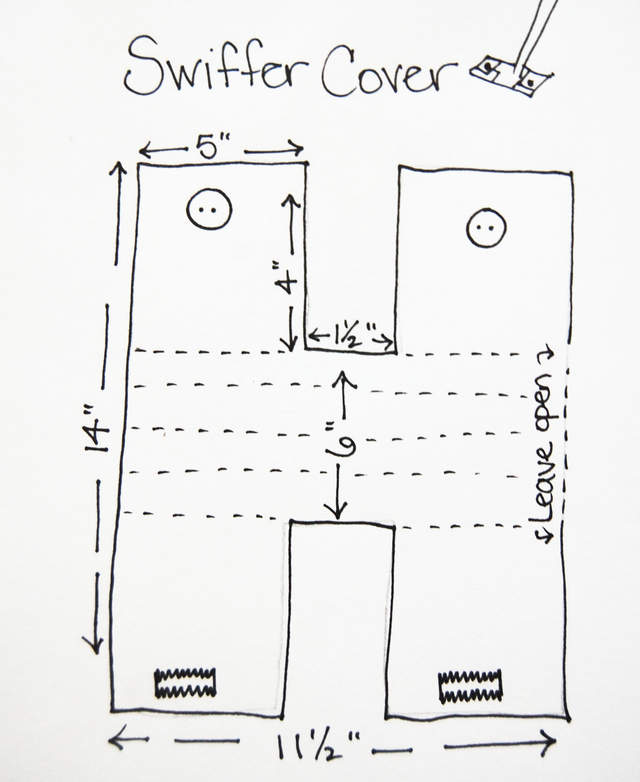 Swiffer Cover
5"
4"
1½"
6"
14"
Leave open
11½"